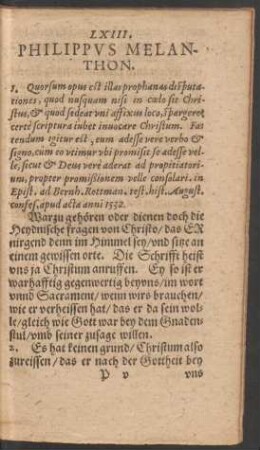 LXIII.
PHILIPPVS MELAN-
THON.
1. Quorsum opus est illas prophanas disputa-
tiones, quod nusquam nisi in cœlo sit Chri-
stus, & quod sedeat vni affixus loco,
certè scriptura iubet inuocare Christum. Fa-
tendum igitur est, eum adesse verè verbo &
signo, cum eo vtimur vbi promisit se adesse vel-
le, sicut & Deus verè aderat ad propitiatori-
um, propter promißionem velle consolari. in
Epist. ad Bernh. Rottman. test. hist. August.
confes. apud acta anni 1532.
Warzu gehören oder dienen doch die
Heydnische fragen von Christo / das ER
nirgend denn im Himmel sey / vnd sitze an
einem gewissen orte. Die Schrifft heist
vns ja Christum anruffen. Ey so ist er
warhafftig gegenwertig bey vns / im wort
vnnd Sacrament / wenn wirs brauchen /
wie er verheissen hat / das er da sein wol-
le / gleich wie Gott war bey dem Gnaden-
stul / vmb seiner zusage willen.
2. Es hat keinen grund / Christum also
zureissen / das er nach der Gottheit bey
P v vns